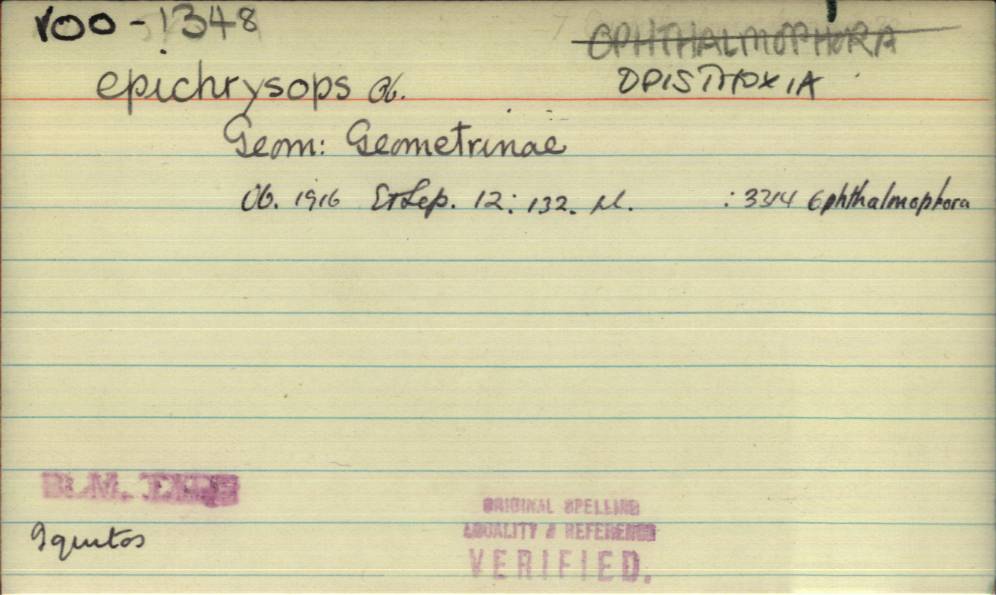 100-1348
OPHTHALMOPHORA
epichrysops Ob.
OPISTHOXIA
Geom: Geometrinae
Ob. 1916 Et Lep. 12: 132. : 3314 Ophthalmophora
B.M. TYPE
Iquitos
ORIGINAL SPELLING
LOCALITY & REFERENCE
VERIFIED.